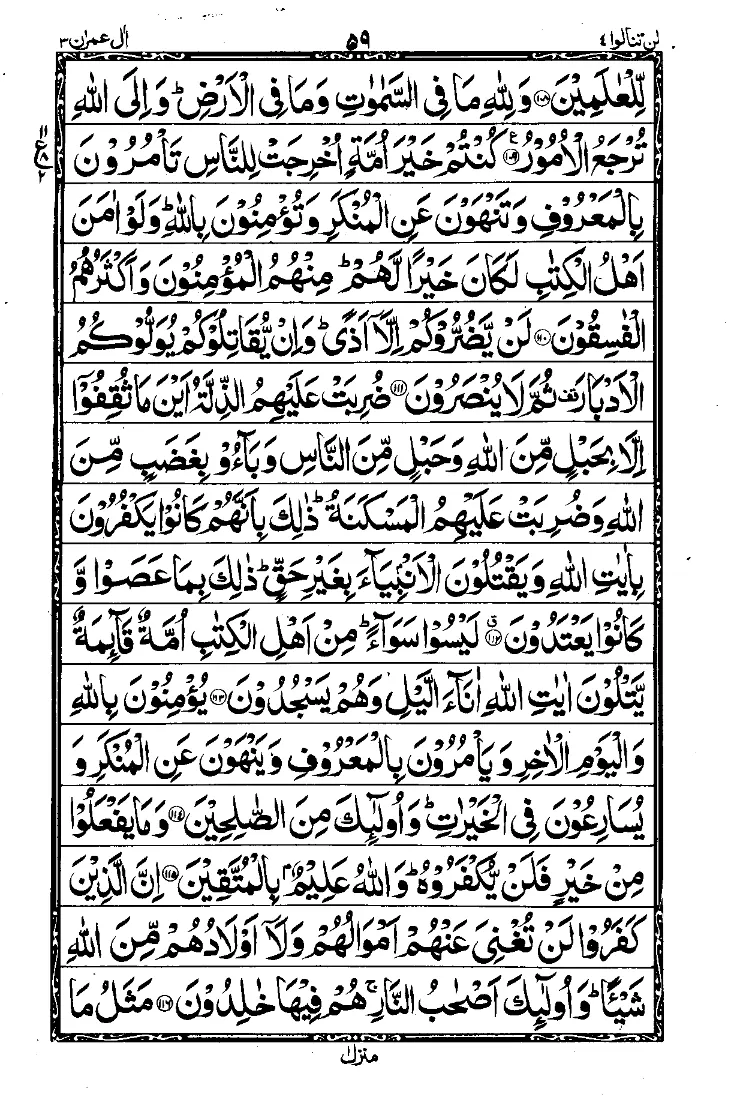 لن تنالوا ٤ ٥٩ اٰل عمرٰن ٣
لِّلْعٰلَمِيْنَ ﴿۱۰۸﴾ وَلِلّٰهِ مَا فِى السَّمٰوٰتِ وَمَا فِى الْاَرْضِ ؕ وَاِلَى اللّٰهِ
تُرْجَعُ الْاُمُوْرُ ﴿۱۰۹﴾ ع كُنْتُمْ خَيْرَ اُمَّةٍ اُخْرِجَتْ لِلنَّاسِ تَاْمُرُوْنَ
۱۱ ع ۸ ۲
بِالْمَعْرُوْفِ وَتَنْهَوْنَ عَنِ الْمُنْكَرِ وَتُؤْمِنُوْنَ بِاللّٰهِ ؕ وَلَوْ اٰمَنَ
اَهْلُ الْكِتٰبِ لَكَانَ خَيْرًا لَّهُمْ ؕ مِنْهُمُ الْمُؤْمِنُوْنَ وَاَكْثَرُهُمُ
الْفٰسِقُوْنَ ﴿۱۱۰﴾ لَنْ يَّضُرُّوْكُمْ اِلَّاۤ اَذًى ؕ وَاِنْ يُّقَاتِلُوْكُمْ يُوَلُّوْكُمُ
الْاَدْبَارَ ثُمَّ لَا يُنْصَرُوْنَ ﴿۱۱۱﴾ ضُرِبَتْ عَلَيْهِمُ الذِّلَّةُ اَيْنَ مَا ثُقِفُوْۤا
اِلَّا بِحَبْلٍ مِّنَ اللّٰهِ وَحَبْلٍ مِّنَ النَّاسِ وَبَآءُوْ بِغَضَبٍ مِّنَ
اللّٰهِ وَضُرِبَتْ عَلَيْهِمُ الْمَسْكَنَةُ ؕ ذٰلِكَ بِاَنَّهُمْ كَانُوْا يَكْفُرُوْنَ
بِاٰيٰتِ اللّٰهِ وَيَقْتُلُوْنَ الْاَنْۢبِيَآءَ بِغَيْرِ حَقٍّ ؕ ذٰلِكَ بِمَا عَصَوْا وَّ
كَانُوْا يَعْتَدُوْنَ ﴿۱۱۲﴾ ق لَيْسُوْا سَوَآءً ؕ مِنْ اَهْلِ الْكِتٰبِ اُمَّةٌ قَآئِمَةٌ
يَّتْلُوْنَ اٰيٰتِ اللّٰهِ اٰنَآءَ الَّيْلِ وَهُمْ يَسْجُدُوْنَ ﴿۱۱۳﴾ يُؤْمِنُوْنَ بِاللّٰهِ
وَالْيَوْمِ الْاٰخِرِ وَيَاْمُرُوْنَ بِالْمَعْرُوْفِ وَيَنْهَوْنَ عَنِ الْمُنْكَرِ وَ
يُسَارِعُوْنَ فِى الْخَيْرٰتِ ؕ وَاُولٰٓئِكَ مِنَ الصّٰلِحِيْنَ ﴿۱۱۴﴾ وَمَا يَفْعَلُوْا
مِنْ خَيْرٍ فَلَنْ يُّكْفَرُوْهُ ؕ وَاللّٰهُ عَلِيْمٌۢ بِالْمُتَّقِيْنَ ﴿۱۱۵﴾ اِنَّ الَّذِيْنَ
كَفَرُوْا لَنْ تُغْنِىَ عَنْهُمْ اَمْوَالُهُمْ وَلَاۤ اَوْلَادُهُمْ مِّنَ اللّٰهِ
شَيْـًٔا ؕ وَاُولٰٓئِكَ اَصْحٰبُ النَّارِ ۚ هُمْ فِيْهَا خٰلِدُوْنَ ﴿۱۱۶﴾ مَثَلُ مَا
منزل ۱